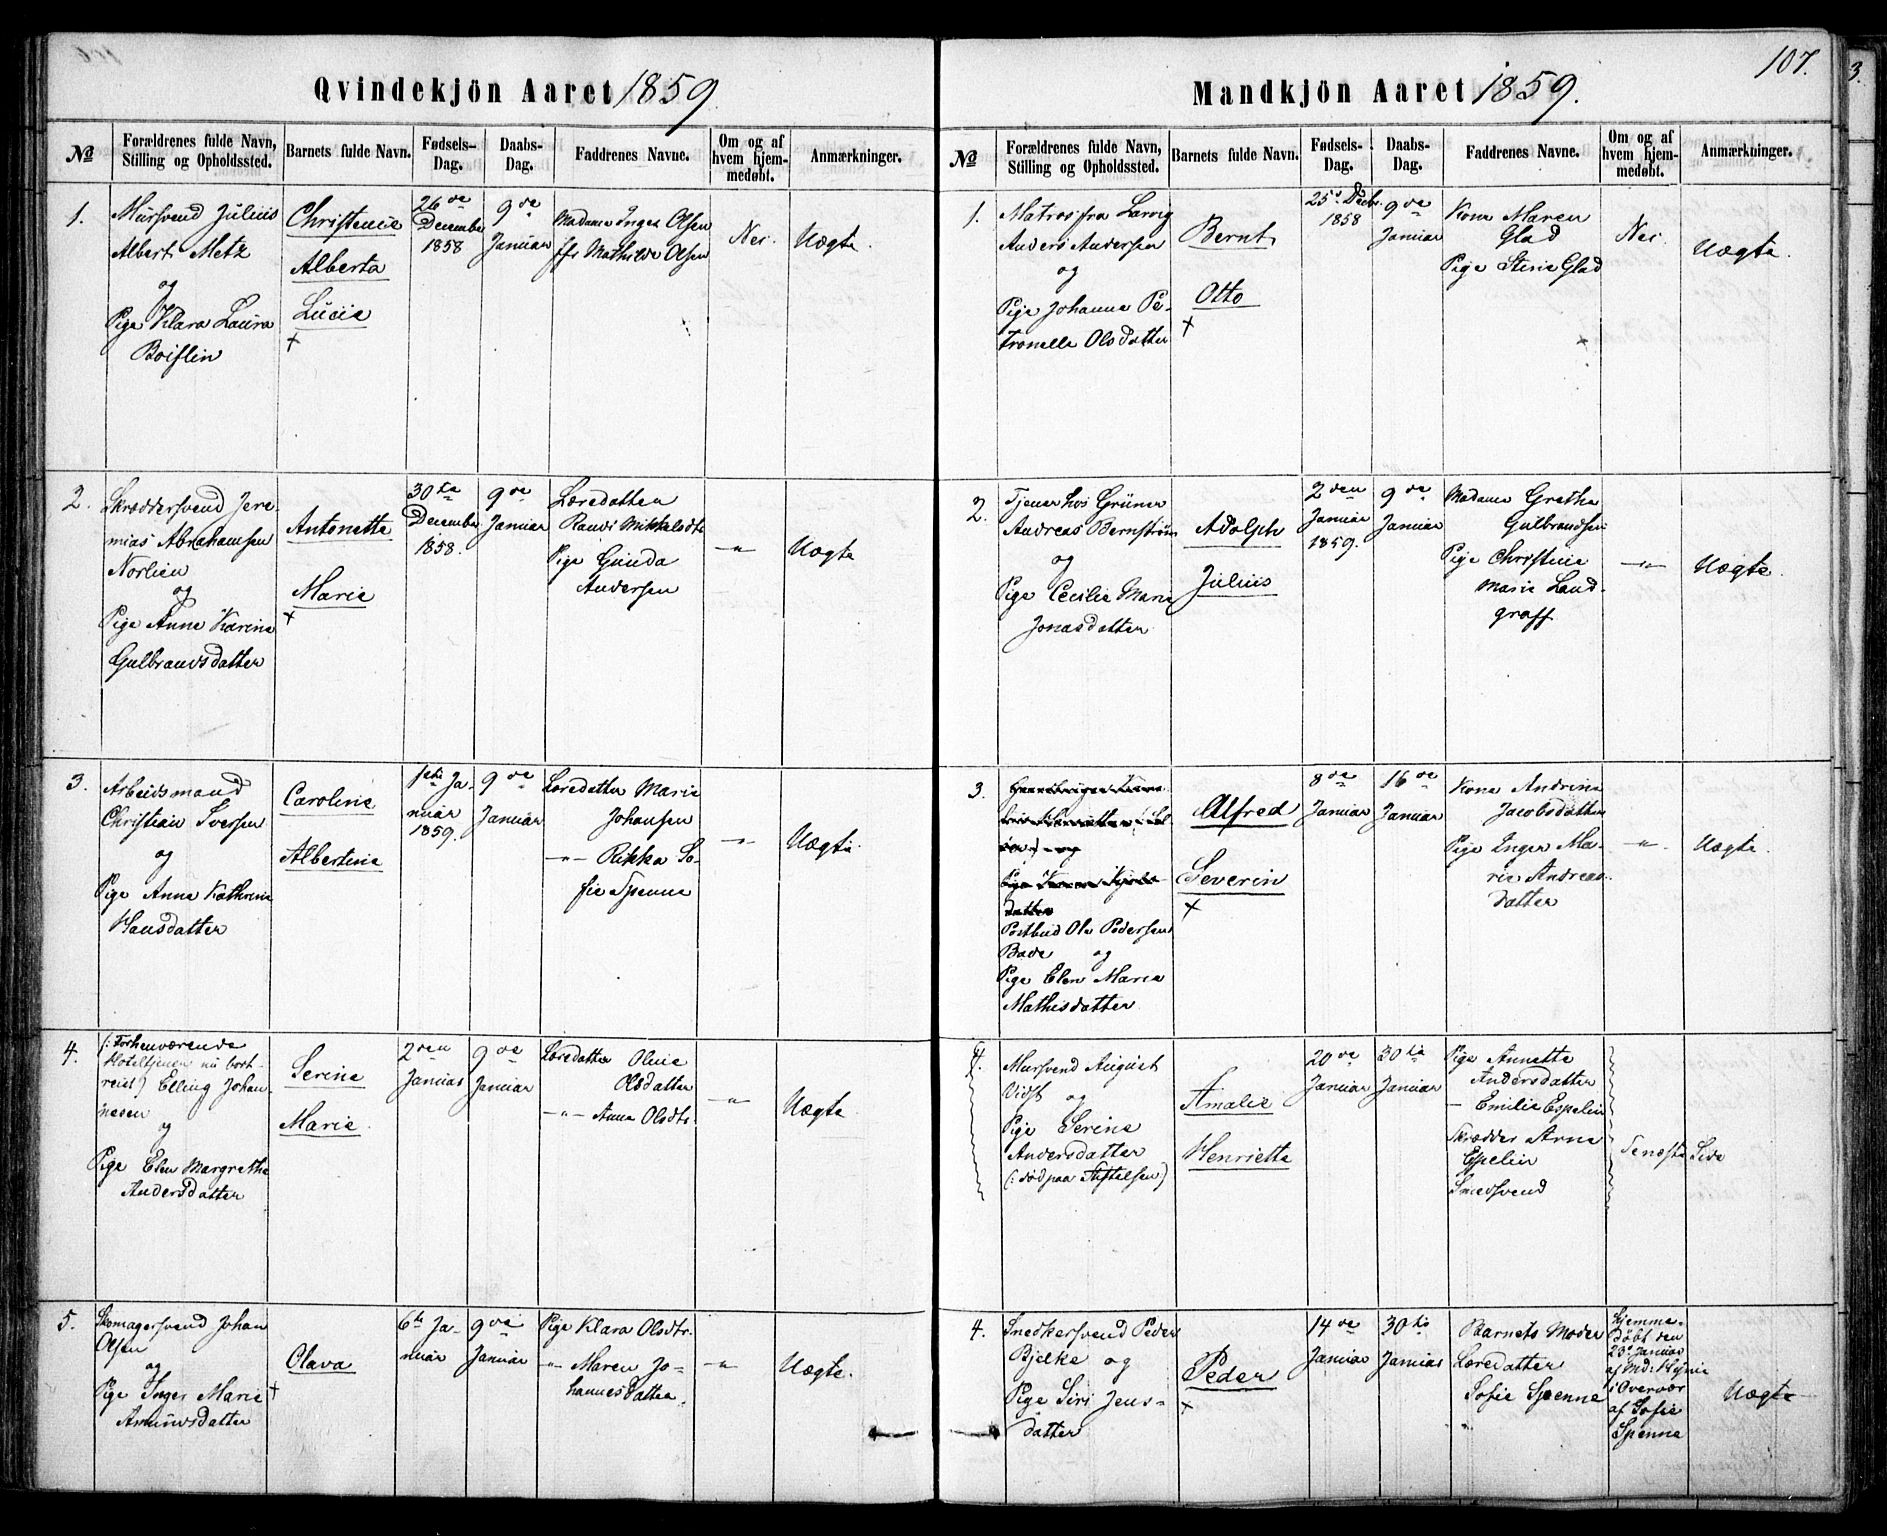 Qvindekjön Aaret 1859.
No
Forældrenes fulde Navn, Stilling og Opholdssted.
Barnets fulde Navn.
Fødsels-Dag.
Daabs-Dag.
Faddrenes Navne.
Om og af hvem hjem-medøbt.
Anmærkninger.
1.
Mursvend Julius
Albert Metz
og
Pige Klara Laura
Christence
Alberta
Lucie
+
26de
December
1858
9de
Januar
Madame Inga Olsen
Mathilde Olsen
Nei.
Uægte.
2.
Skræddersvend Jere-
mias Abrahamsen
Norlien
og
Pige Anne Karine
Gulbrandsdatter
Antonette
Marie
+
30te
December
1858.
9de
Januar
Læredatter
Randi Mikkelsdtr
Pige Gunda
Andersen
—"—
Uægte
3.
Arbeidsmand
Christian Iversen
og
Pige Anne Kathrine
Hansdatter
Caroline
Albertine
1ste Ja-
nuar
1859.
9de
Januar
Læredatter Marie
Johansen
—"— Rikka So-
fie Spenne
—"—
Uægte.
4.
(: Forhenværende
Hoteltjener nu bort-
reist) Elling Johan-
nesen
og
Pige Elen Margrethe
Andersdatter
Serine
Marie.
2den
Januar
9de
Januar
Læredatter Oline
Olsdatter
—"— Anne Olsdtr.
—"—
Uægte
5.
Skomagersvend Johan
Olsen
og
Pige Inger Marie
Amundsdatter
Olava
+
6te Ja-
nuar
9de
Januar
Pige Klara Olsdtr.
—"— Maren Jo-
hannesdatter.
—"—
Uægte.
107.
3.
Mandkjön Aaret 1859.
No
Forældrenes fulde Navn, Stilling og Opholdssted.
Barnets fulde Navn.
Fødsels-Dag.
Daabs-Dag.
Faddrenes Navne.
Om og af hvem hjem-medøbt.
Anmærkninger.
1.
Matros fra Larvig
Anders Andersen
og
Pige Johanne Pe-
tronelle Olsdatter
Bernt
Otto
+
25de Decbr.
1858
9de
Januar
Kone Maren
Glad
Pige Stine Glad
Nei.
Uægte.
2.
Tjener hos Grüner
Andreas Bernstrøm
og
Pige Cecilie Marie
Jonasdatter
Adolph
Julius
2den
Januar
1859.
9de
Januar
Madame Grethe
Gulbrandsen
Pige Christine
Marie Land-
graff
—"—
Uægte.
3.
Postbud Ole Pedersen
Bade og
Pige Elen Marie
Mathisdatter
Alfred
Severin
+
8de
Januar
16de
Januar
Kone Andrine
Jacobsdatter
Pige Inger Ma-
rie Andreas-
datter
—"—
Uægte.
4.
Mursvend August
Vidst og
Pige Serine
Andersdatter
(: død paa Stiftelsen)
Amalie
Henriette
20de
Januar
30te
Januar
Pige Annette
Andersdatter
— Emilie Espelin
Skrædder Arne
Espelin
Smedsvend
Seneste Side
4.
Snedkersvend Peder
Bjelke og
Pige Siri Jens-
datter
Peder
+
14de
Januar
30te
Januar
Barnets Moder
Læredatter
Sofie Spenne
Hjemme-
døbt den
23de Januar
i Overvær
af Sofie
Spenne
Uægte